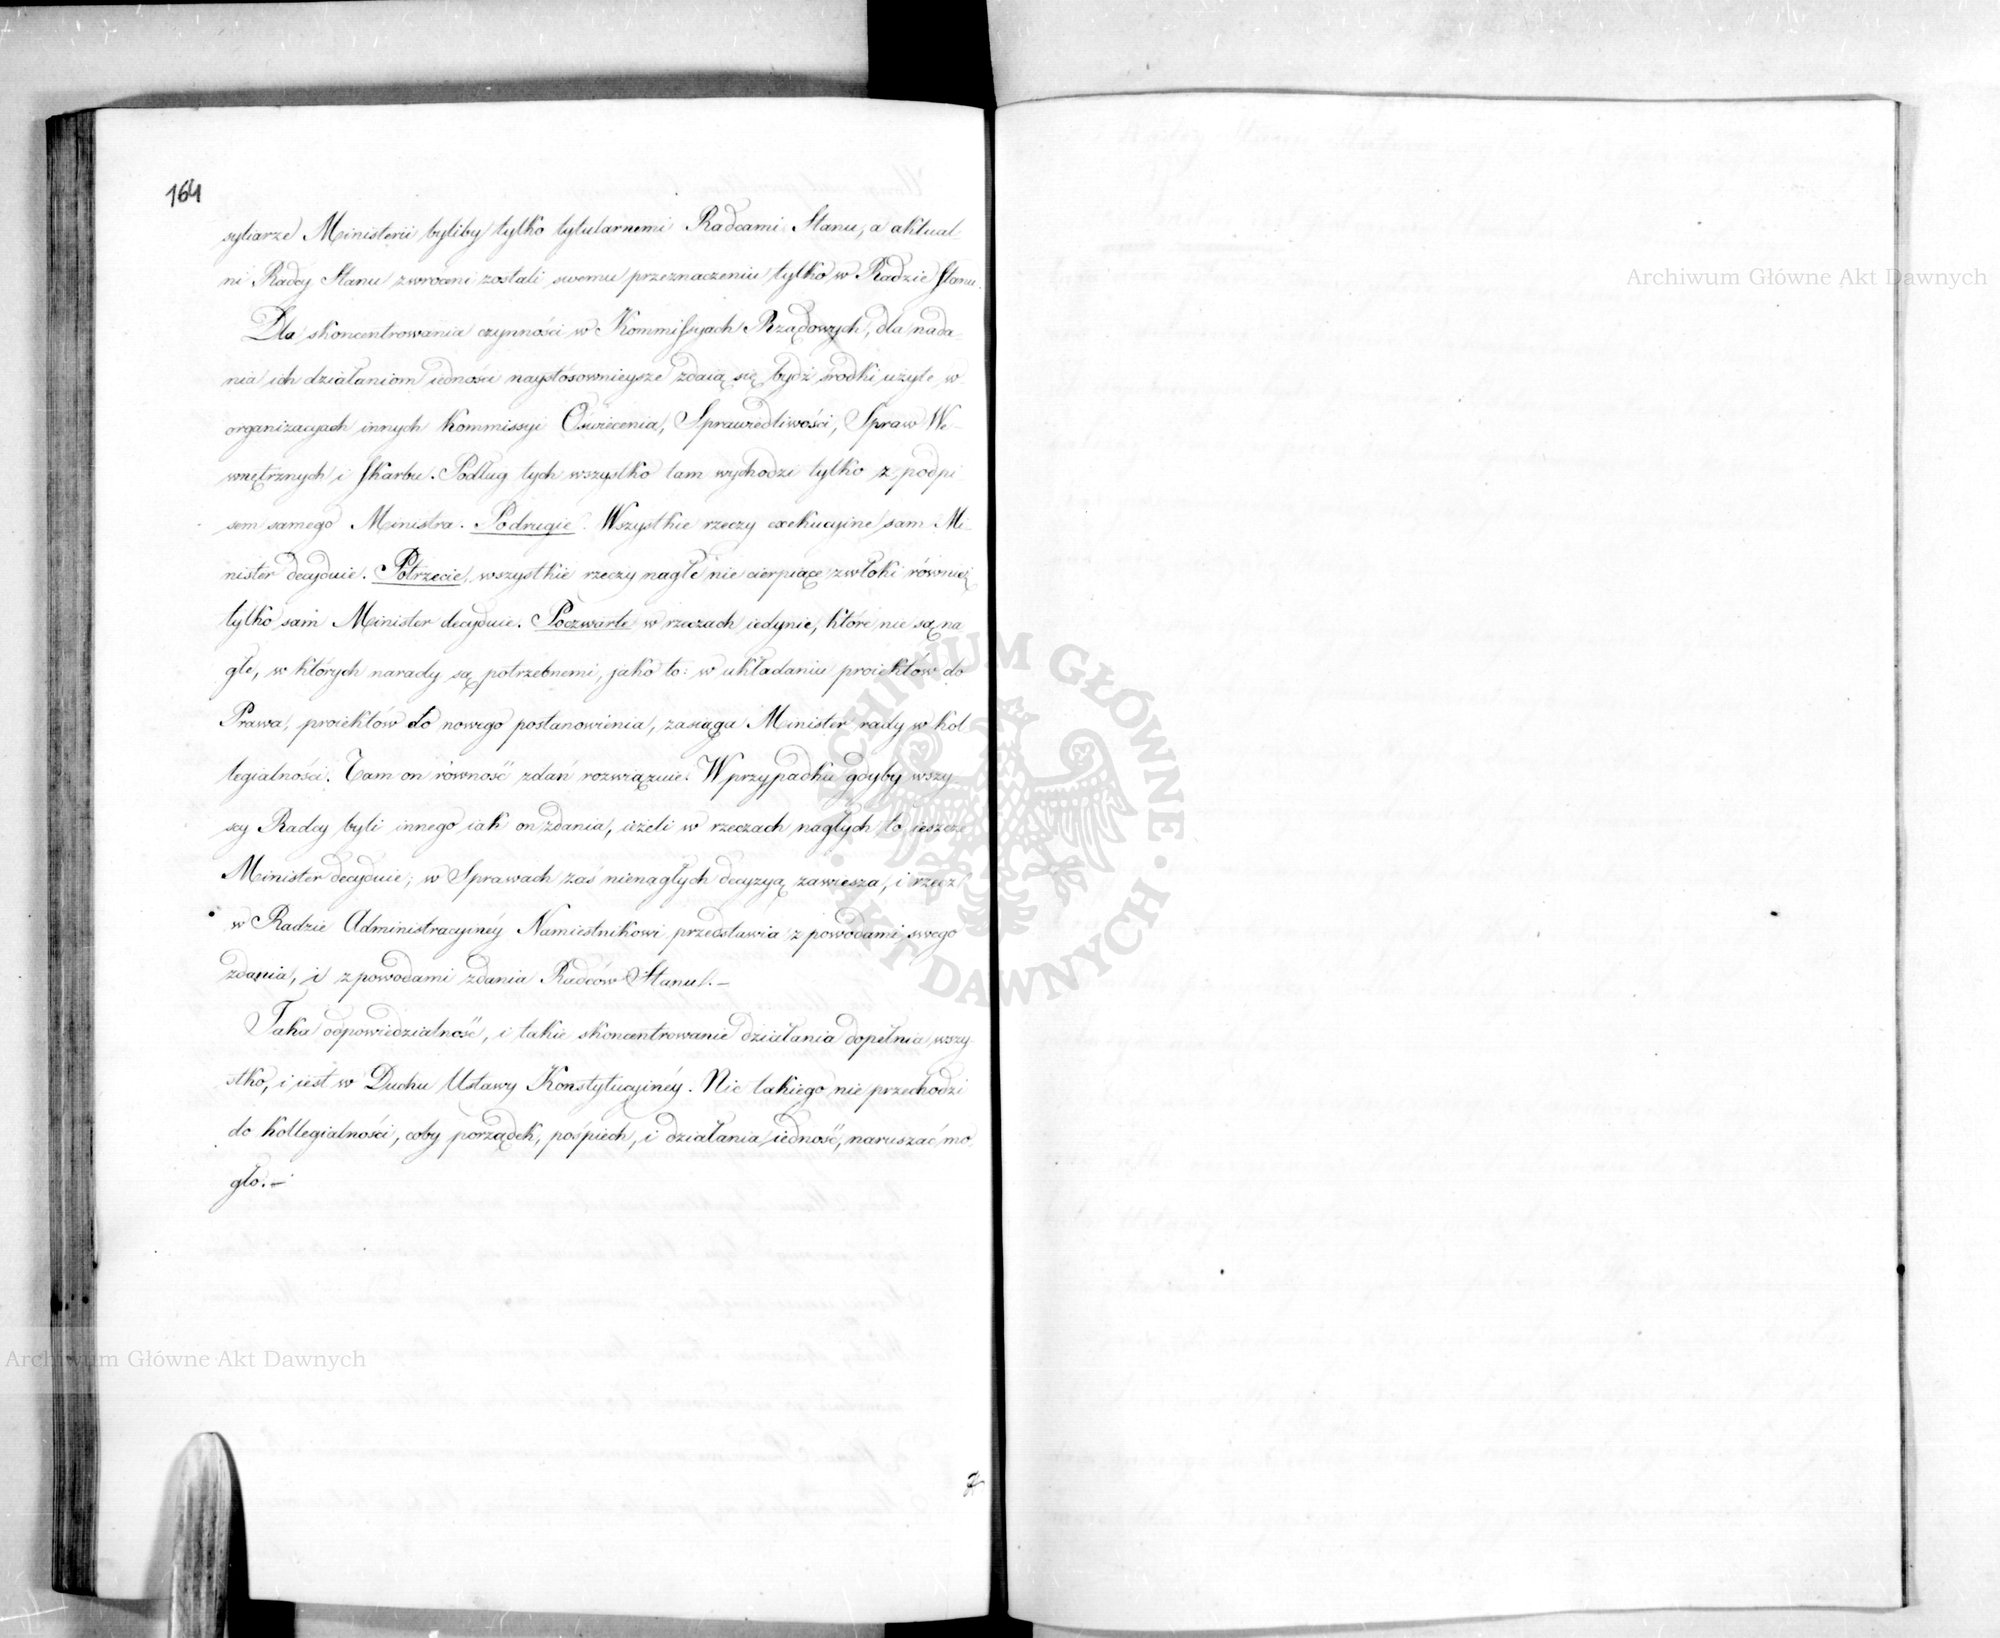 164
syliarze Ministerii byliby tylko tytularnemi Radcami Stanu, a aktual-
ni Radcy Stanu zwroceni zostali swemu przeznaczeniu tylko w Radzie Stanu.
Dla skoncentrowania czynności w Kommissyach Rządowych, dla nada-
nia ich działaniom iedności naystósownieysze zdaią się bydź środki użyte w
organizacyach innych Kommissyi Oświecenia, Sprawiedliwości, Spraw We-
wnętrznych i Skarbu. Podług tych wszystko tam wychodzi tylko z podpi
sem samego Ministra. Podrugie. Wszystkie rzeczy exekucyine sam Mi-
nister decyduie. Potrzecie, wszystkie rzeczy nagłe nie cierpiące zwłoki również
tylko sam Minister decyduie. Poczwarte w rzeczach iedynie, które nie są na
głe, w których narady są potrzebnemi, jako to: w układaniu proiektów do
Prawa, proiektów do nowego postanowienia, zasięga Minister rady w kol
legialności. Tam on równość zdań rozwiązuie. W przypadku gdyby wszy-
scy Radcy byli innego iak on zdania, ieżeli w rzeczach nagłych to ieszcze
Minister decyduie; w Sprawach zaś nienagłych decyzyą zawiesza, i rzecz
w Radzie Administracyinéy Namiestnikowi przedstawia z powodami swego
zdania, i z powodami zdania Radców Stanu. –
Taka odpowiedzialność, i takie skoncentrowanie działania dopełnia wszy-
stko, i iest w Duchu Ustawy Konstytucyinéy. Nic takiego nie przechodzi
do kollegialności, coby porządek, pośpiech, i działania iedność, naruszać mo-
gło. –
Archiwum Główne Akt Dawnych
ARCHIWUM GŁÓWNE · AKT DAWNYCH ·
Archiwum Główne Akt Dawnych